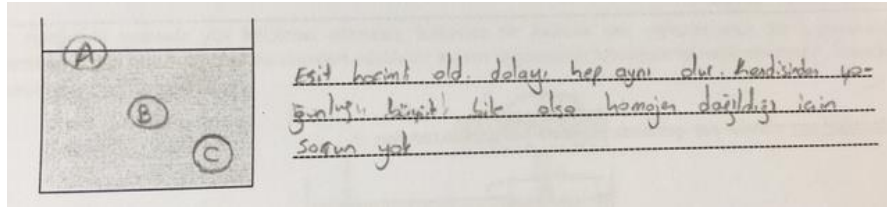 A
B
C
Eşit hacimli old. dolayı hep aynı olur. Kendisinden yo-
ğunluğu bile olsa homojen dağıldığı için
sorun yok